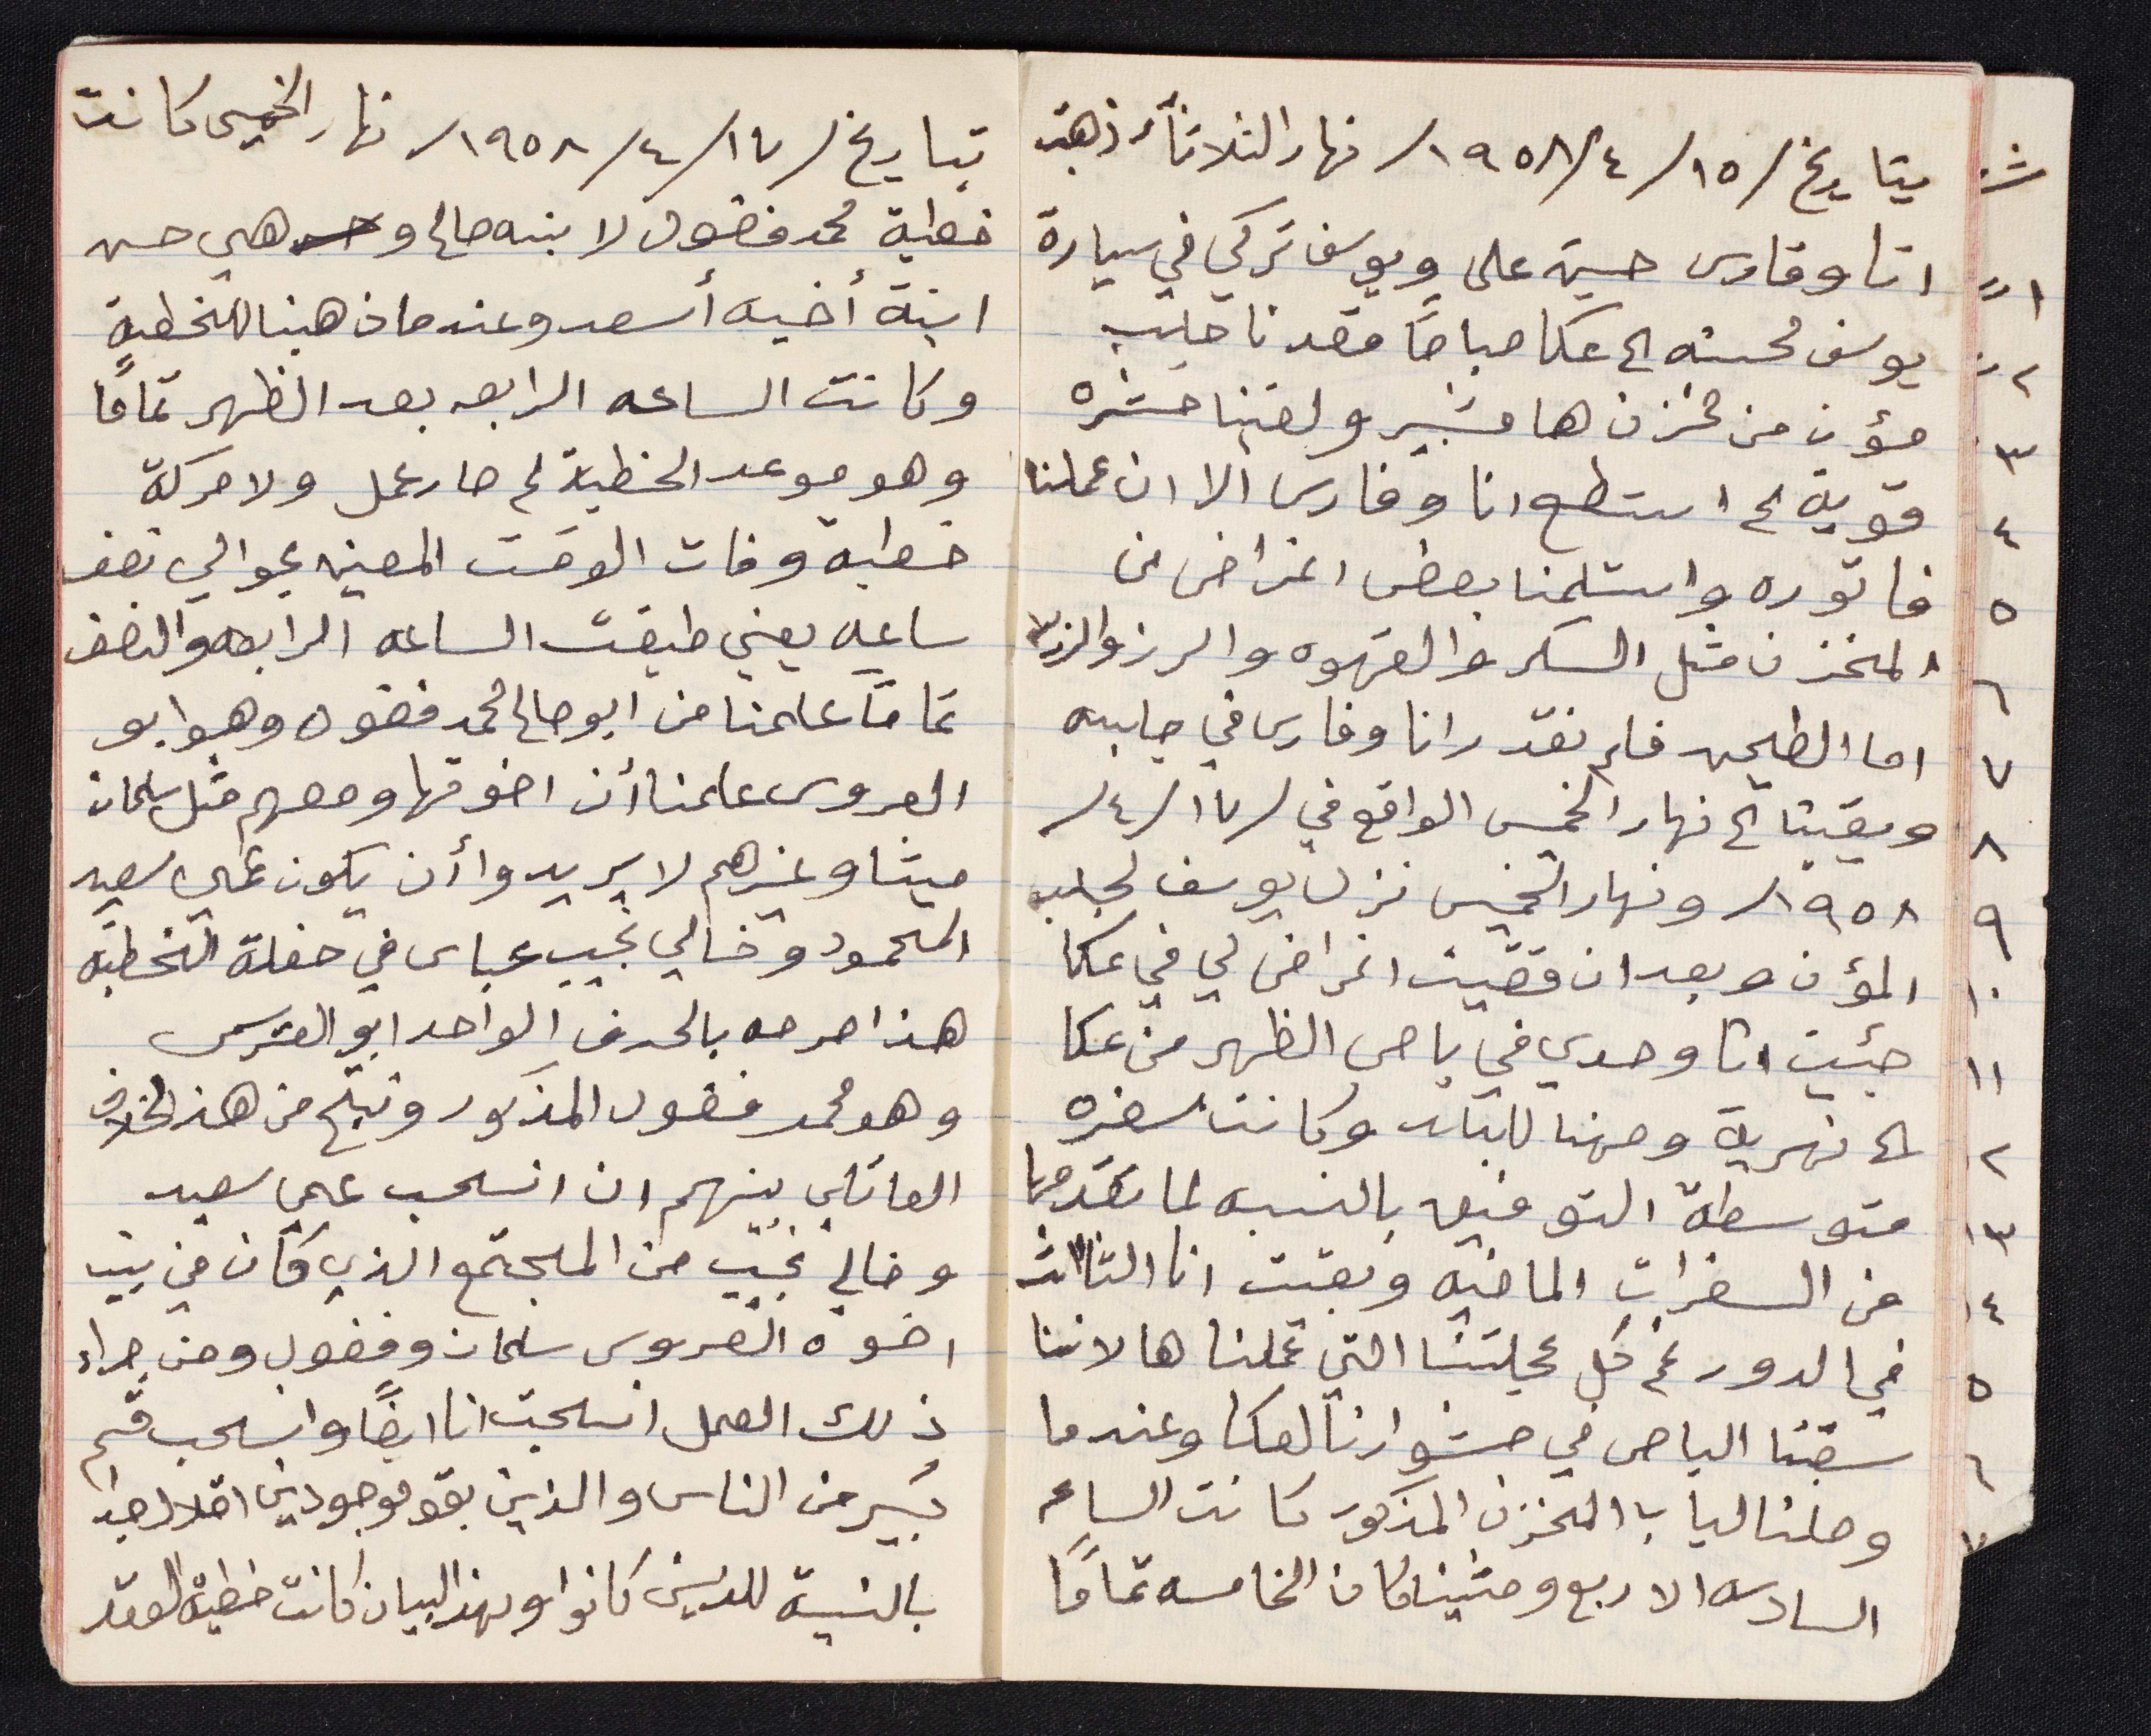 بتاريخ /١٥/٤/١٩٥٨/ نهار الثلاثاء ذهبت
انا وفارس حسين علي ويوسف تركي في سيارة
يوسف محسنه الى عكا صباحًا قصدنا جليب
مؤن من مخزن هامشبير ولقينا حشره
قوية لم استطع انا وفارس الا ان عملنا
فاتوره واستلمنا بعض اغراض من
المخزن مثل السكر والقهوه والرز والزيت
اما الطحين فلم نقدر انا وفارس في جليبه
وبقينا الى نهار الخميس الواقع في /١٧/٤/
١٩٥٨/ ونهار الخميس نزل يوسف لجلب
المؤن وبعد ان قضيت اغراض لي في عكا
جئيت انا وحدي في باص الظهر من عكا
الى نهرية ومنها للبلد وكانت سفره
متوسطة التوفيق بالنسبه لما تقدمها
من السفرات الماضيه وبقيت انا الثالث
في الدور غم كل عجلتنا التي عملناها لاننا
سبقنا الباص في مشوارنا لعكا وعندما
وصلنا لباب المخزن المذكور كانت الساعه
السادسه الا ربع ومشينا كان الخامسه تمامًا
بتاريخ /١٧/٤/١٩٥٨/ نهار الخميس كانت
خطبة محمد فضول لابنه صالح و هي حسن
ابنة أخيه أسعد وعندما ذهبنا للخطبة
وكانت الساعه الرابعه بعد الظهر تمامًا
وهو موعد الخطبة لم صار عمل ولا حركة
خطبة وفات الوقت المعين بحوالي نصف
ساعه يعني طبقت الساعه الرابعه والنصف
تمامًا علمنا من ابو صالح محمد فضول وهو ابو
العروس علمنا أن اخوتها ومعهم مثل سلمان
ميثا وغيرهم لا يريدوا أن يكون عمي سعيد
المحمود وخالي نجيب عباس في حفلة الخطبه
هذا صرحه بالحرف الواحد ابو العريس
وهو محمد فضول المذكور ونتج من هذا الخلاف
العائلي بينهم ان انسحب عمي سعيد
وخالي نجيب من المجتمع الذي كان في بيت
اخوه العروس سلمان وفضول ومن جراء
ذلك العمل انسحبت انا ايضًا وانسحب قسم
كبير من الناس والذين بقو موجودين اقلاء جدا
بالنسبة للذين كانوا وبهذا البيان كانت خطبة العقد
ش
١
٢
٣
٤
٥
٦
٧
٨
٩
١٠
١١
٢
١٣
١٤
٥
٦
٧